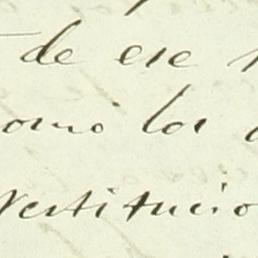 de ese
como los
restitucio